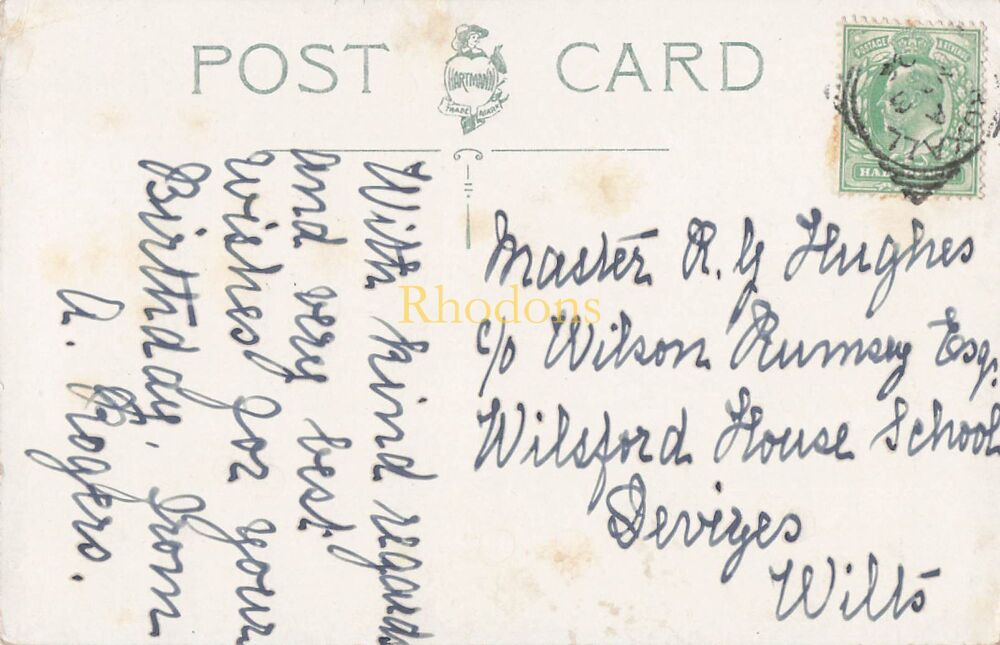 POST CARD
HARTMANN
TRADE MARK
POSTAGE & REVENUE
With kind regards
and very best
wishes for your
Birthday, From
A. Rogers.
Master R. G Hughes
c/o Wilson Rumsey Esq.
Wilsford House School
Devizes
Wilts
Rhodons